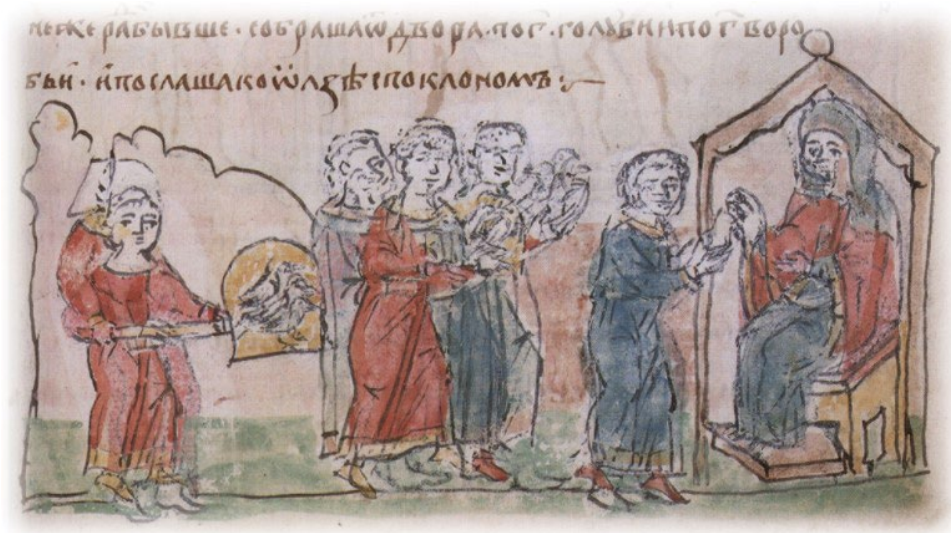 неже ради бывше · собрашаѿ двора · по г҃ · голꙋби и по г҃ воро
бьи · и послаша ко ѡлзѣ с поклономъ :~